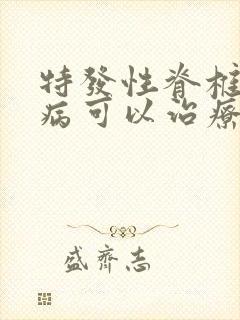 特發性脊椎
病可以治療
盛齊志